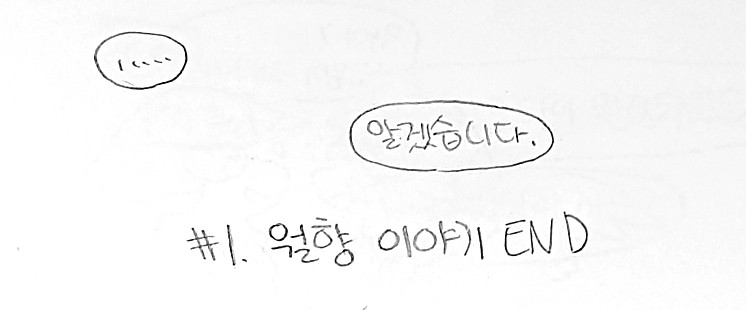 ......
알겠습니다.
#1. 월향 이야기 END